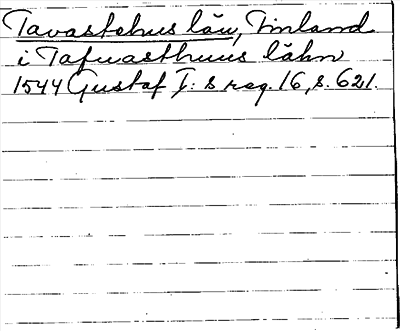 Tavastehus län, Finland.
i Tafwasthuus lähn
1544 Gustaf I:s reg. 16, s. 621.